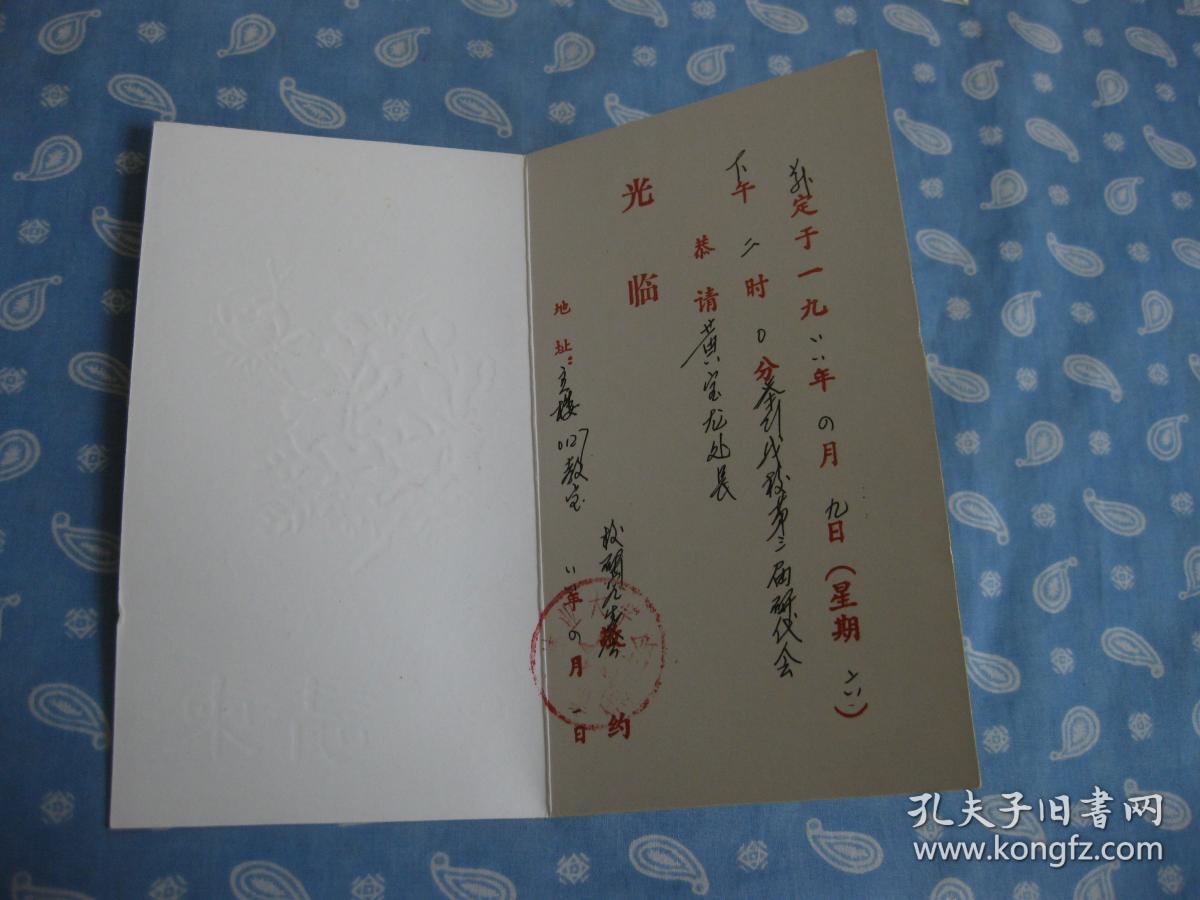 兹定于一九八八年四月九日（星期六）
下午二时0分举行我校第三届研代会
恭请黄宝龙处长
光临
地址：主楼0127教室
校研究生会 敬约
八八年四月一日
孔夫子旧书网
www.kongfz.com